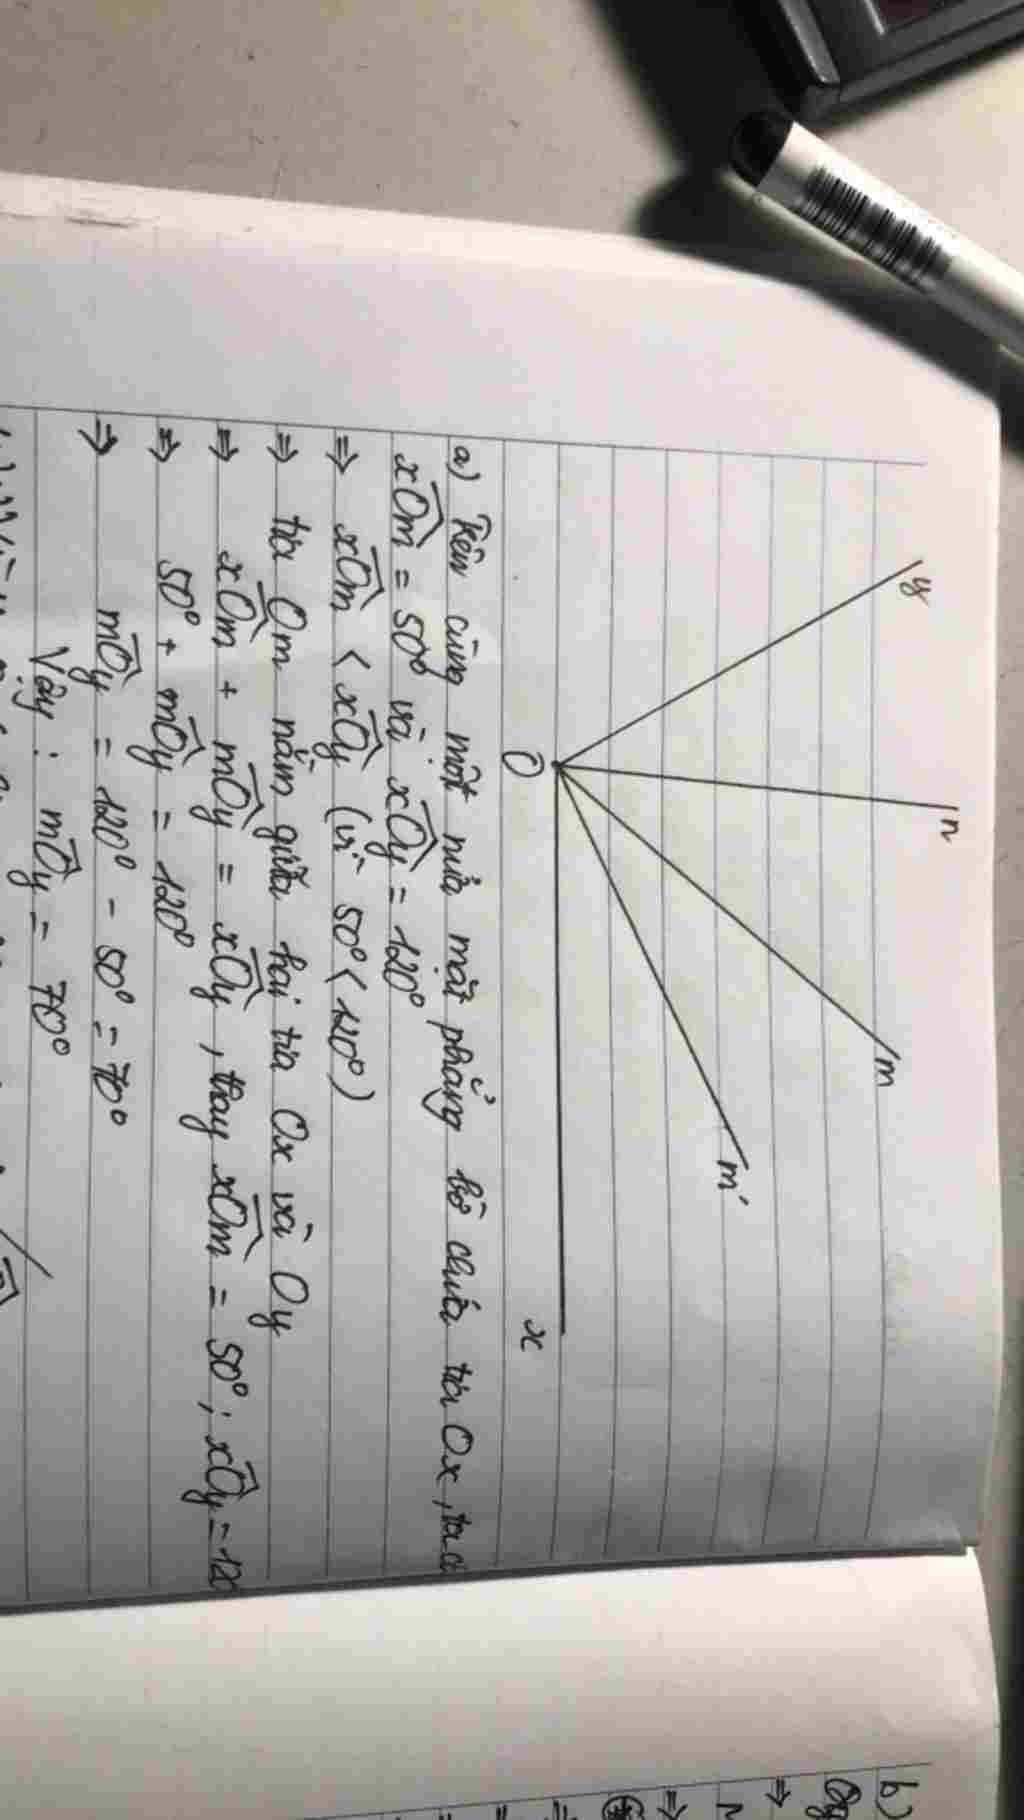 y
n
m
m'
O
x
a) Trên cùng một nửa mặt phẳng bờ chứa tia Ox, ta có
xÔm = 50° và xÔy = 120°
⇒ xÔm < xÔy (vì 50° < 120°)
⇒ tia Om nằm giữa hai tia Ox và Oy
⇒ xÔm + mÔy = xÔy, thay xÔm = 50°; xÔy = 120
⇒ 50° + mÔy = 120°
⇒ mÔy = 120° - 50° = 70°
Vậy: mÔy = 70°
b)